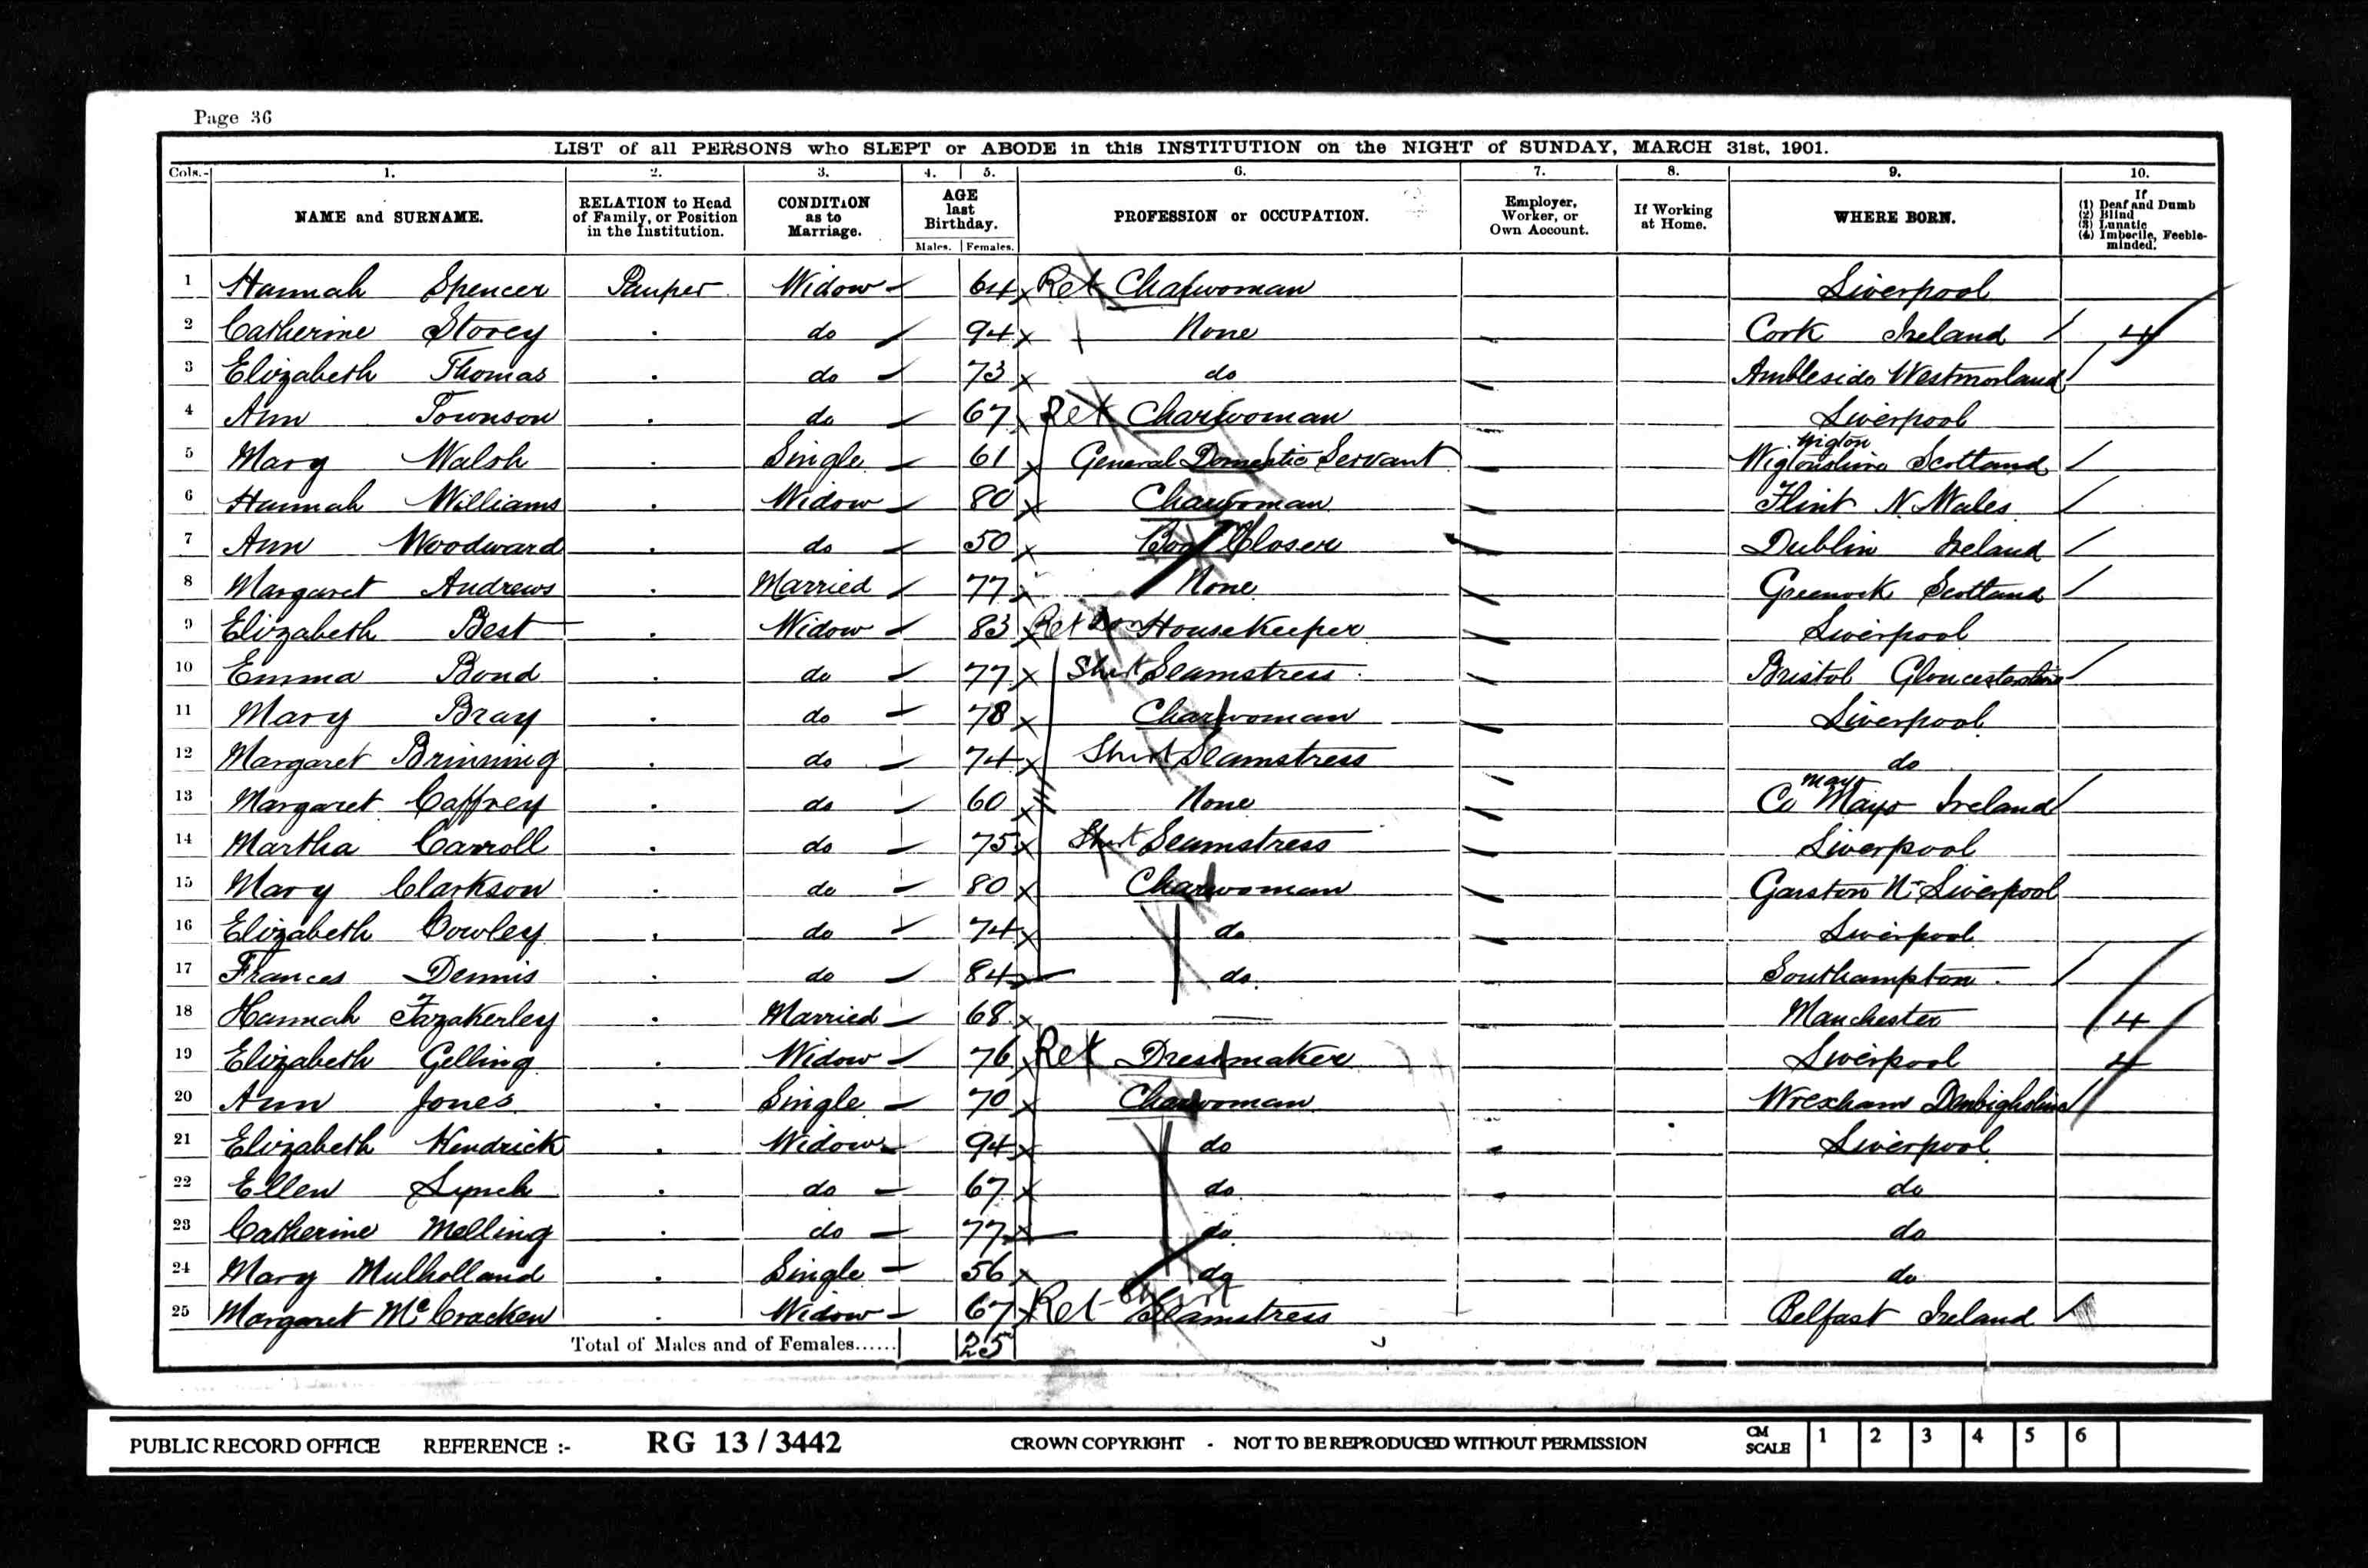 Page 36
LIST of all PERSONS who SLEPT or ABODE in this INSTITUTION on the NIGHT of SUNDAY, MARCH 31st, 1901.
Cols.- 1. 2. 3. 4. 5. 6. 7. 8. 9. 10.
NAME and SURNAME. RELATION to Head of Family, or Position in the Institution. CONDITION as to Marriage. AGE last Birthday. Males. Females. PROFESSION or OCCUPATION. Employer, Worker, or Own Account. If Working at Home. WHERE BORN. If (1) Deaf and Dumb (2) Blind (3) Lunatic (4) Imbecile, Feeble-minded.
1 Hannah Spencer Pauper Widow 64 Ret Charwoman Liverpool
2 Catherine Storey . do 94 None Cork Ireland 4
3 Elizabeth Thomas . do 73 do Ambleside Westmorland
4 Ann Townson . do 67 Ret Charwoman Liverpool
5 Mary Walsh . Single 61 General Domestic Servant Wigtonshire Wigton Scotland
6 Hannah Williams . Widow 80 Charwoman Flint N. Wales
7 Ann Woodward . do 50 Boot Closer Dublin Ireland
8 Margaret Andrews . Married 77 None Greenock Scotland
9 Elizabeth Best . Widow 83 Ret Dom Housekeeper Liverpool
10 Emma Bond . do 77 Shirt Seamstress Bristol Gloucestershire
11 Mary Bray . do 78 Charwoman Liverpool
12 Margaret Brinning . do 74 Shirt Seamstress do
13 Margaret Caffrey . do 60 None Co Mayo Mayo Ireland
14 Martha Carroll . do 75 Shirt Seamstress Liverpool
15 Mary Clarkson . do 80 Charwoman Garston Nr Liverpool
16 Elizabeth Cowley . do 74 do Liverpool
17 Frances Dennis . do 84 do Southampton
18 Hannah Fazakerley . Married 68 — Manchester 4
19 Elizabeth Gelling . Widow 76 Ret Dressmaker Liverpool 4
20 Ann Jones . Single 70 Charwoman Wrexham Denbighshire
21 Elizabeth Kendrick . Widow 94 do Liverpool
22 Ellen Lynch . do 67 do do
23 Catherine Melling . do 77 do do
24 Mary Mulholland . Single 56 do do
25 Margaret McCracken . Widow 67 Ret Shirt Seamstress Belfast Ireland
Total of Males and of Females...... 25
PUBLIC RECORD OFFICE REFERENCE :- RG 13 / 3442 CROWN COPYRIGHT - NOT TO BE REPRODUCED WITHOUT PERMISSION CM SCALE 1 2 3 4 5 6